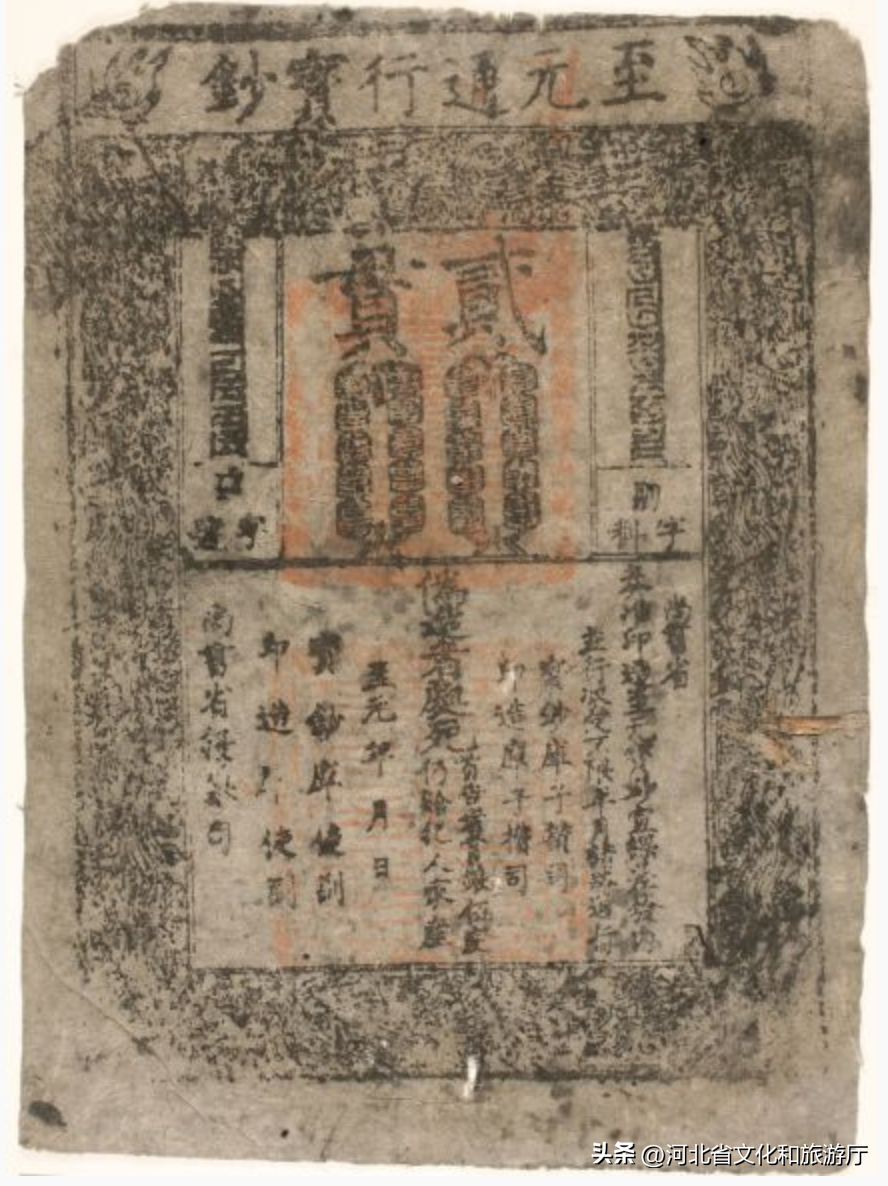 至元通行寶鈔
貳貫
字料
字號
尚書省
奏准印造至元寶鈔宣課差役內
並行收受不限年月諸路通行
寶鈔庫子攢司
印造庫子攢司
偽造者處死
首告者賞銀伍定
仍給犯人家產
至元年月日
寶鈔庫使副
印造庫使副
尚書省提舉司
头条 @河北省文化和旅游厅